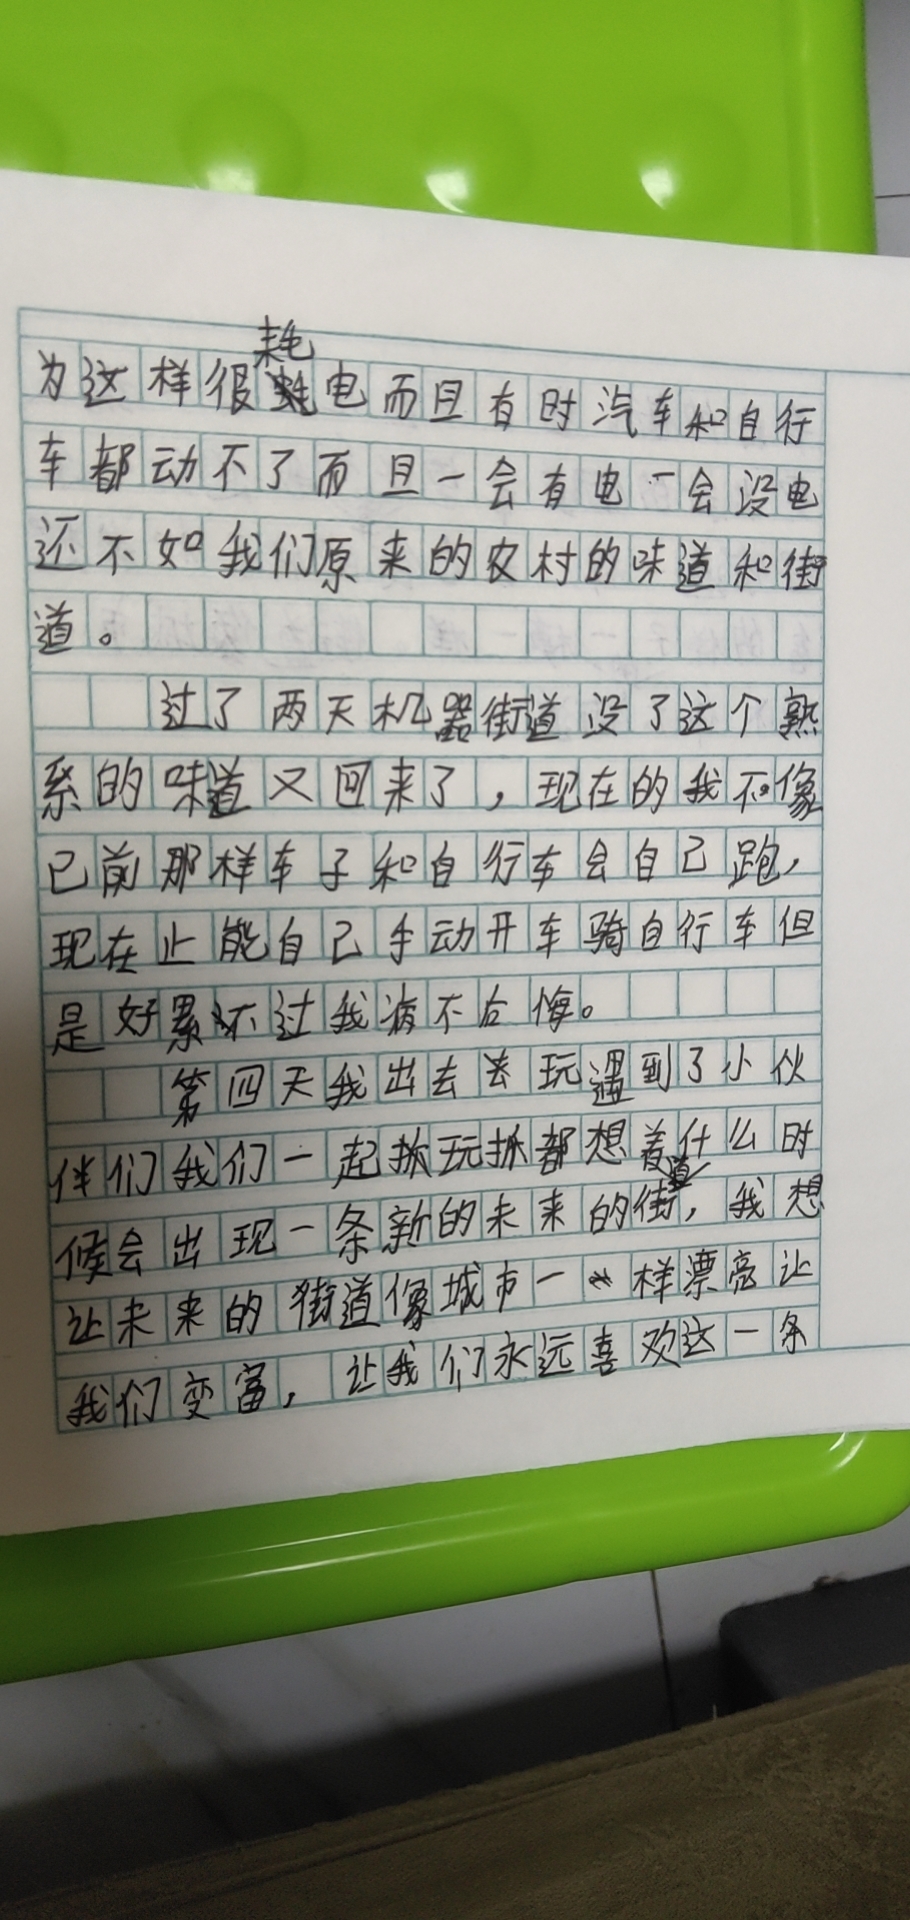 耗
为这样很电而且有时汽车和自行
车都动不了而且一会有电一会没电
还不如我们原来的农村的味道和街
道。
过了两天机器街道没了这个熟
系的味道又回来了，现在的我不像
已前那样车子和自行车会自己跑，
现在止能自己手动开车骑自行车但
是好累不过我病不后悔。
第四天我出去去玩遇到了小伙
伴们我们一起抓玩抓都想着什么时
候会出现一条新的未来的街道，我想
让未来的街道像城市一样漂亮让
我们变富，让我们永远喜欢这一条